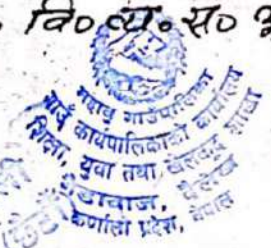 वि० व्य० स०
महाबु गाउँपालिका
गाउँ कार्यपालिकाको कार्यालय
शिक्षा, युवा तथा खेलकुद शाखा
दैलेख
कर्णाली प्रदेश, नेपाल